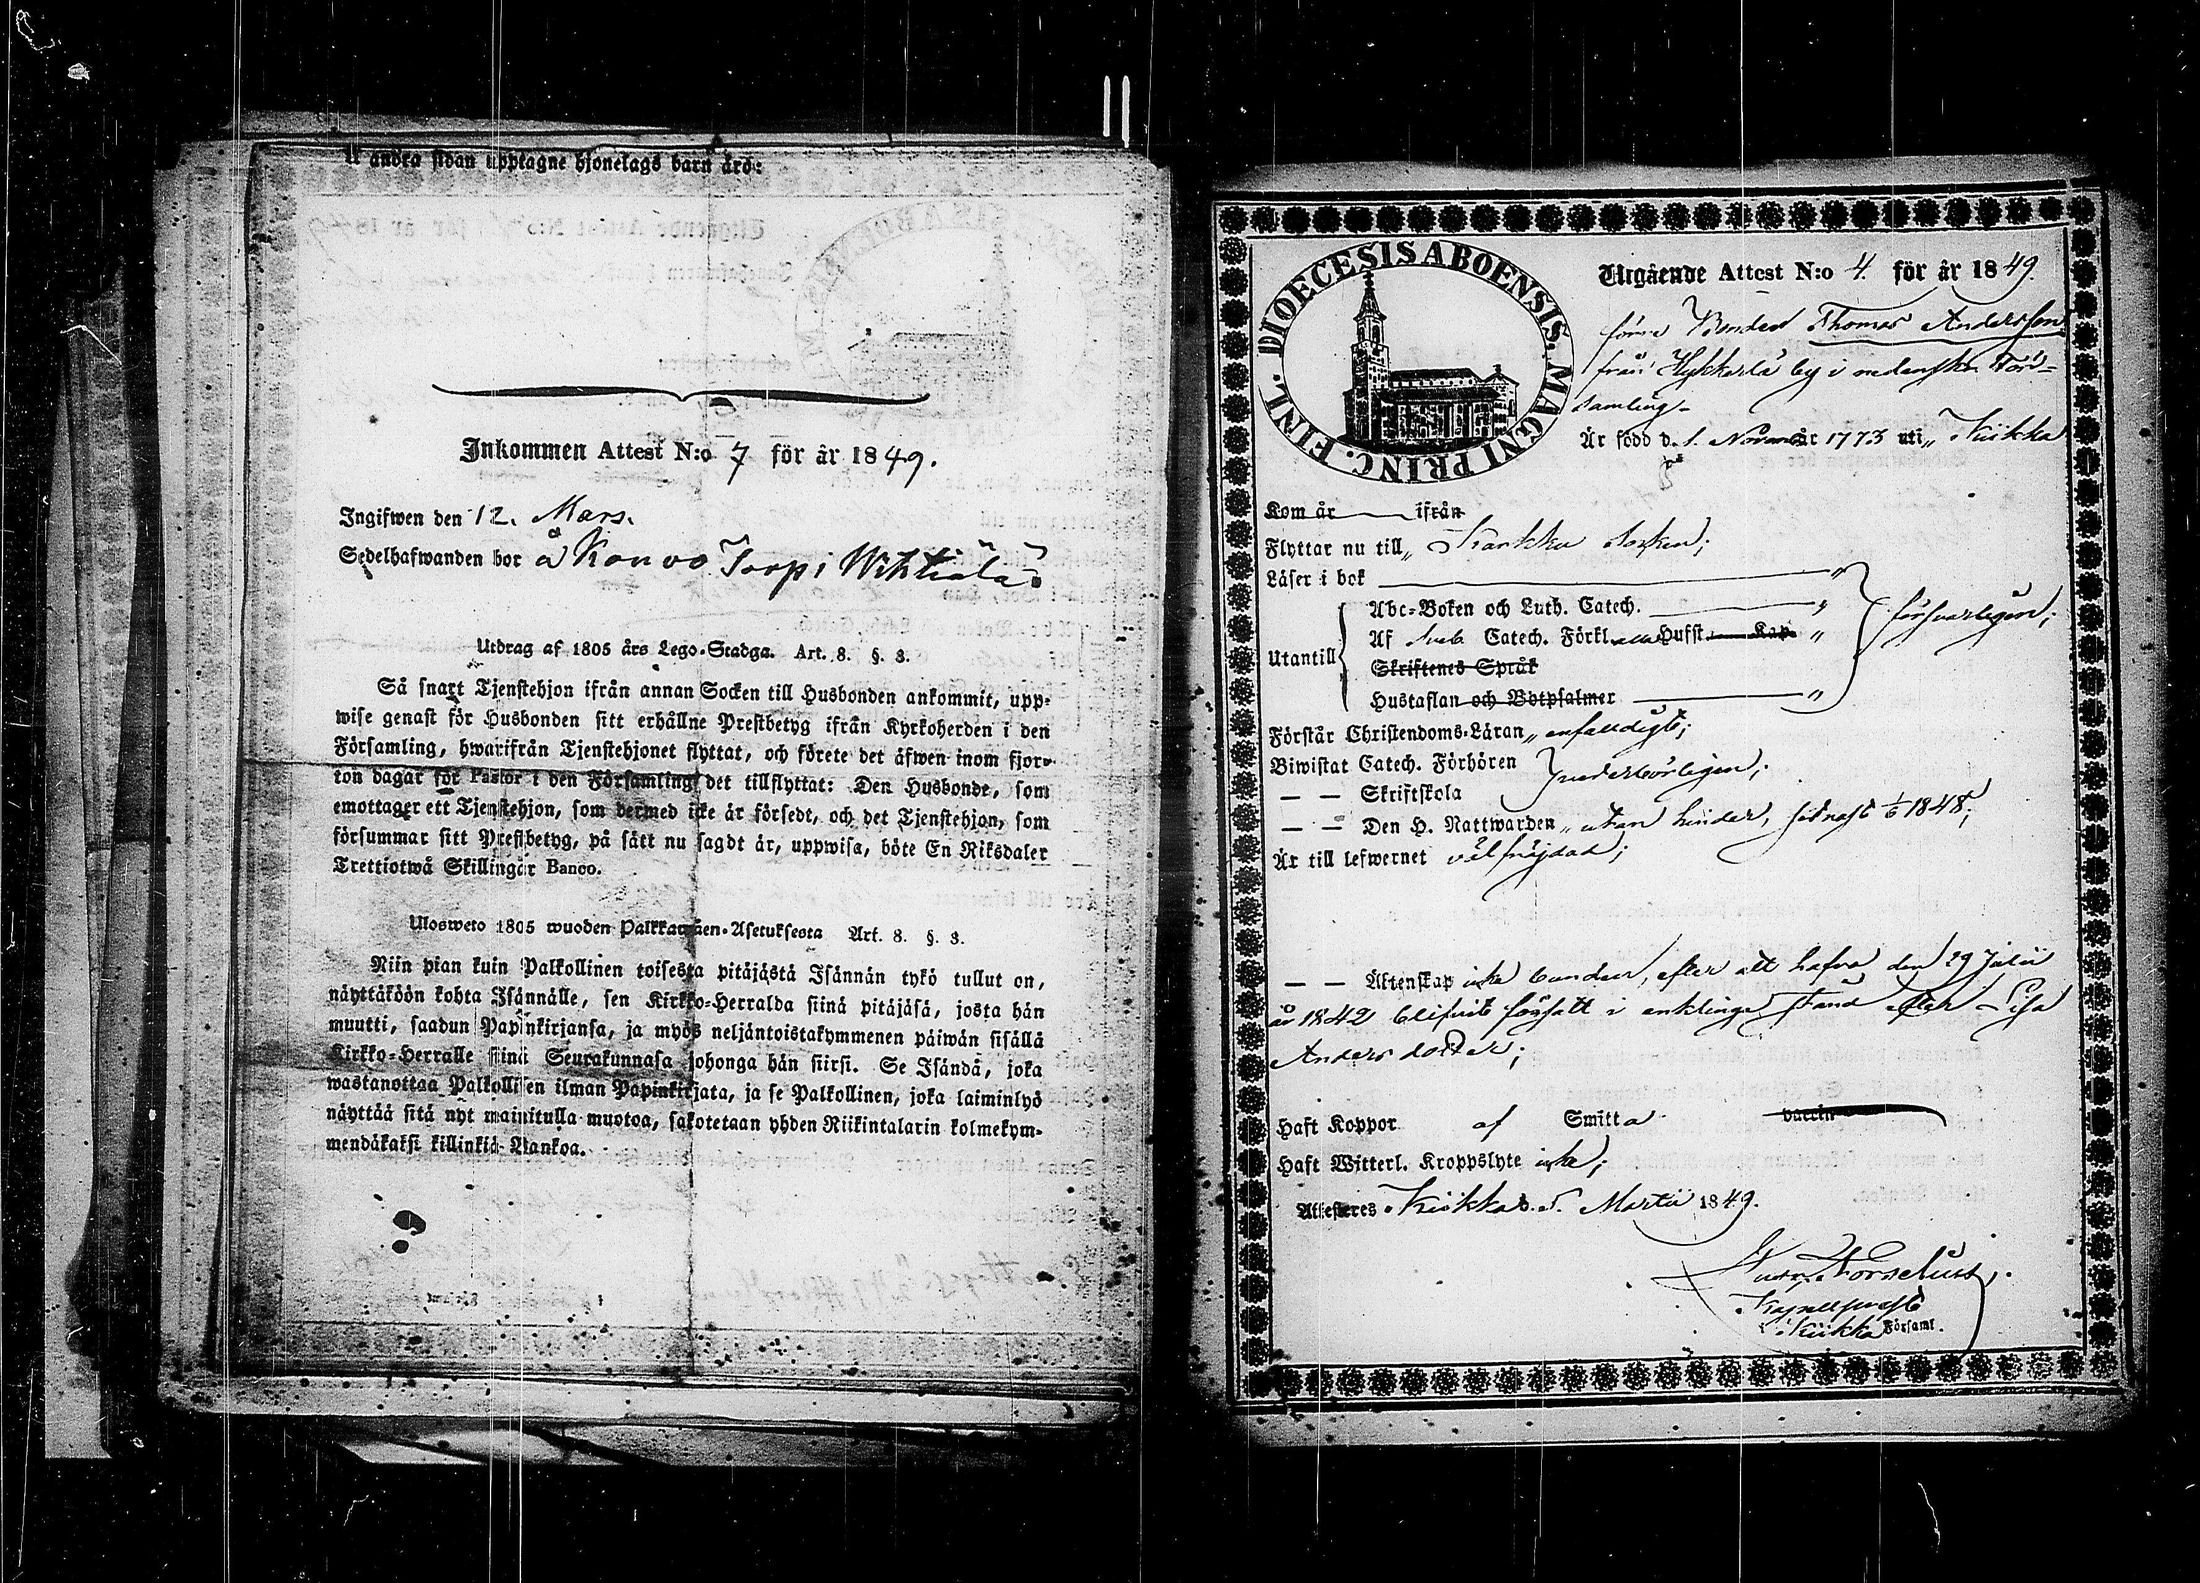 A andra sidan upptagne hjonelags barn äro:
Inkommen Attest N:o 7 för år 1849.
Ingifwen den 12. Mars.
Sedelhafwanden bor å Konvo Torp i Wihtiälä.
Utdrag af 1805 års Lego-Stadga. Art. 8. §. 3.
Så snart Tjenstehjon ifrån annan Socken till Husbonden ankommit, upp-
wise genast för Husbonden sitt erhållne Prestbetyg ifrån Kyrkoherden i den
Församling, hwarifrån Tjenstehjonet flyttat, och förete det äfwen inom fjor-
ton dagar för Pastor i den Församling det tillflyttat: Den Husbonde, som
emottager ett Tjenstehjon, som dermed icke är försedt, och det Tjenstehjon, som
försummar sitt Prestbetyg, på sätt nu sagdt är, uppwisa, böte En Riksdaler
Trettiotwå Skillingar Banco.
Ulosweto 1805 wuoden Palkkawäen-Asetuksesta Art. 8. §. 3.
Niin pian kuin Palkollinen toisesta pitäjästä Isännän tykö tullut on,
näyttäköön kohta Isännälle, sen Kirkko-Herralda siinä pitäjäsä, josta hän
muutti, saadun Papinkirjansa, ja myös neljäntoistakymmenen päiwän sisällä
Kirkko-Herralle siinä Seurakunnasa johonga hän siirsi. Se Isändä, joka
wastanottaa Palkollisen ilman Papinkirjata, ja se Palkollinen, joka laiminlyö
näyttää sitä nyt mainitulla muotoa, sakotetaan yhden Riikintalarin kolmekym-
mendäkaksi killinkiä Bankoa.
DIOECESIS ABOENSIS. MAGNI PRINC. FINL.
Utgående Attest N:o 4. för år 1849.
förre Bonden Thomas Andersson
från Hykkerlä by i nedanskr. För-
samling-
Är född d. 1. Novem år 1773 uti Kiikka
Kom år ifrån
Flyttar nu till Karkku Socken;
Läser i bok
Abc-Boken och Luth. Catech.
Af Sveb. Catech. Förkl. Husst. Kap försvarligen;
Utantill
Skriftenes Språk
Hustaflan och Botpsalmer
Förstår Christendoms-Läran enfaldigt;
Biwistat Catech. Förhören
— — Skriftskola
— — Den H. Nattwarden utan hinder, sednast 1848;
Är till lefwernet välfrejdad;
— — Äktenskap icke bunden, efter att hafva den 29 Julii
år 1842 blifvit försatt i enklinge stånd efter Lisa
Anders dotter;
Haft Koppor af Smitta vaccin
Haft Witterl. Kroppslyte icke;
Attesteres Kiikka d. 5. Martii 1849.
Kapellprest
i Kiikka Församl.